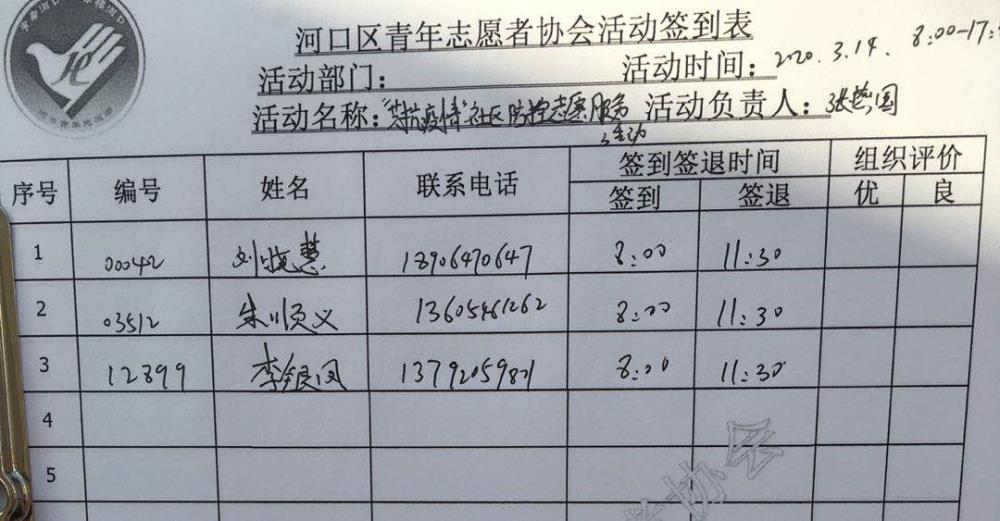 河口区青年志愿者协会活动签到表
活动部门: 活动时间: 2020.3.14. 8:00-17:
活动名称: "共抗疫情"社区防控志愿服务活动 活动负责人:
序号 编号 姓名 联系电话 签到签退时间 组织评价
签到 签退 优 良
1 00042 刘晓慧 18906470647 8:00 11:30
2 03512 朱顺义 13605461262 8:00 11:30
3 12899 李银凤 13792059821 8:00 11:30
4
5
协会